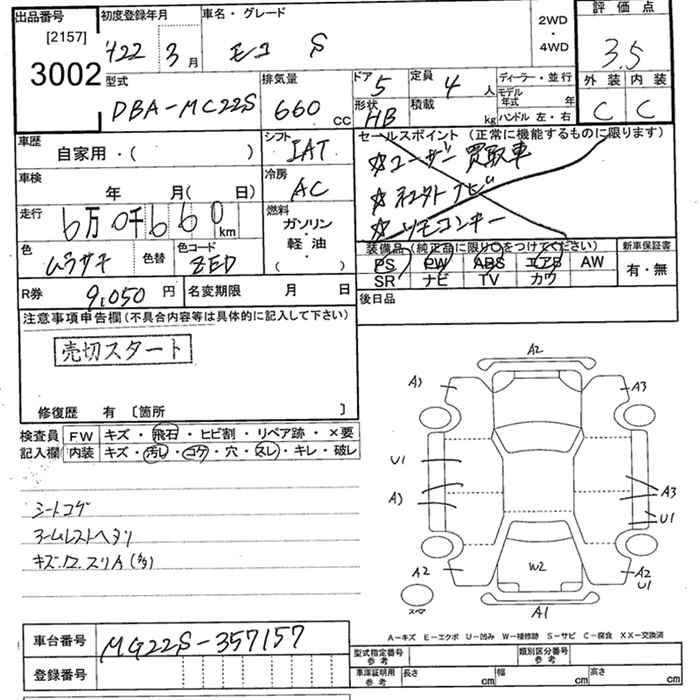 出品番号 初度登録年月 車名・グレード 2WD・4WD 評価点
[2157] 3002 H22 3月 モコ S 3.5
型式 排気量 ドア 5 定員 4人 ディーラー・並行 外装 内装
DBA-MG22S 660cc 形状 HB 積載 kg モデル年式 年 ハンドル 左・右 C C
車歴 自家用・( ) シフト IAT セールスポイント(正常に機能するものに限ります)
☆ユーザー買取車
車検 年 月( 日) 冷房 AC ☆ネクストナビ
走行 6万0千660km 燃料 ガソリン 軽油・( ) ☆リモコンキー
色 ムラサキ 色替 色コード ZED 装備品(純正品に限り○をつけてください) 新車保証書
PS PW ABS エアB AW 有・無
SR ナビ TV カワ
R券 9,050円 名変期限 月 日 後日品
注意事項申告欄(不具合内容等は具体的に記入して下さい)
売切スタート
修復歴 有 〔箇所 〕
検査員記入欄 FW キズ・飛石・ヒビ割・リペア跡・×要
内装 キズ・汚レ・コゲ・穴・スレ・キレ・破レ
シートコゲ
アームレストヘタリ
A2
A3 A3
U1
A3 A3
U1
W2
A2 A2
U1
スペア A1
A-キズ E-エクボ U-凹み W-補修跡 S-サビ C-腐食 XX-交換済
車台番号 MG22S-357157 型式指定番号参考 類別区分番号参考
登録番号 車庫証明用参考 長さ cm 幅 cm 高さ cm